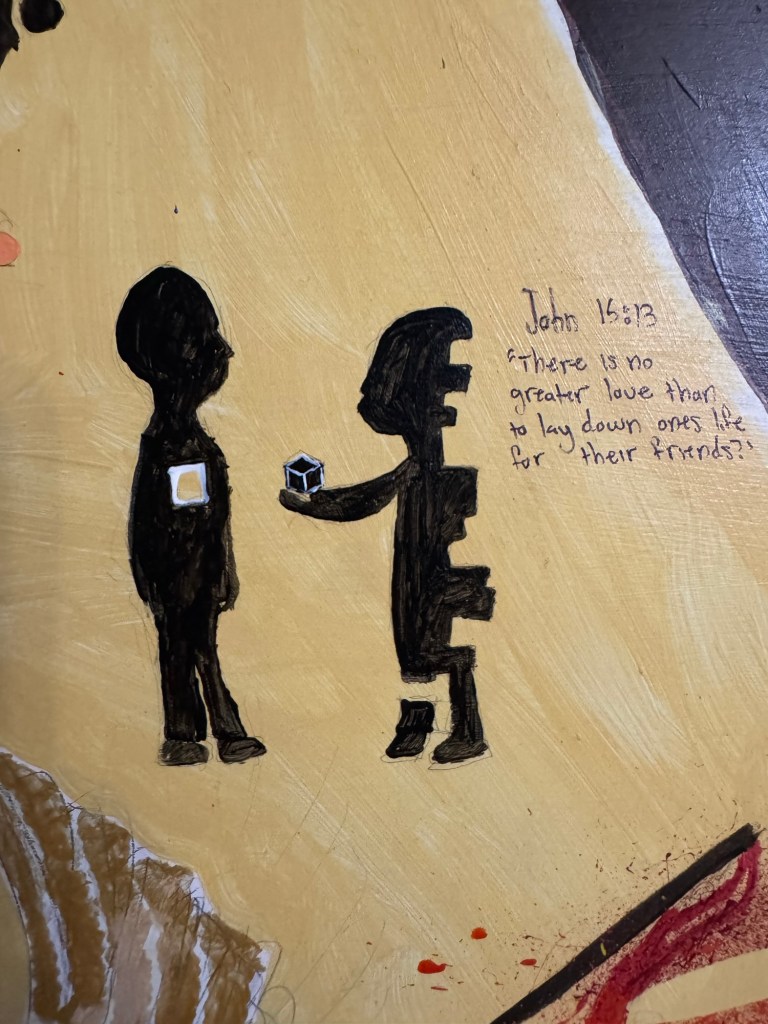 John 15:13
"There is no
greater love than
to lay down ones life
for their friends?"